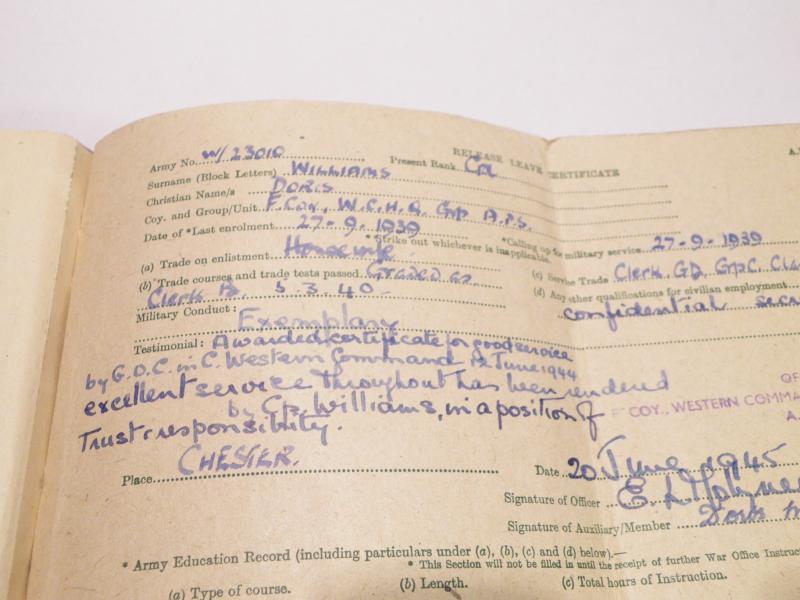 RELEASE LEAVE CERTIFICATE
A.
Army No. W/23010 Present Rank Cpl
Surname (Block Letters) WILLIAMS
Christian Name/s DORIS
Coy. and Group/Unit F. Coy., W.C.H.Q. Grp A.T.S.
Date of *Last enrolment 27-9-1939 *Calling up for military service 27-9-1939
*Strike out whichever is inapplicable.
(a) Trade on enlistment Housewife
(b) Trade courses and trade tests passed Graded as (c) Service Trade Clerk, GD. Gp C. Cla
Clerk 5.3.40 (d) Any other qualifications for civilian employment
Military Conduct: Exemplary confidential secr
Testimonial: Awarded certificate for good service
by G.O.C. in C. Western Command 12 June 1944
excellent service throughout has been rendered
by Cpl. Williams, in a position of
Trust & responsibility.
OF
F COY., WESTERN COMMA
A.
Place CHESTER. Date 20 June 1945
Signature of Officer
Signature of Auxiliary/Member Doris
* Army Education Record (including particulars under (a), (b), (c) and (d) below).—
* This Section will not be filled in until the receipt of further War Office Instruc
(a) Type of course. (b) Length. (c) Total hours of Instruction.